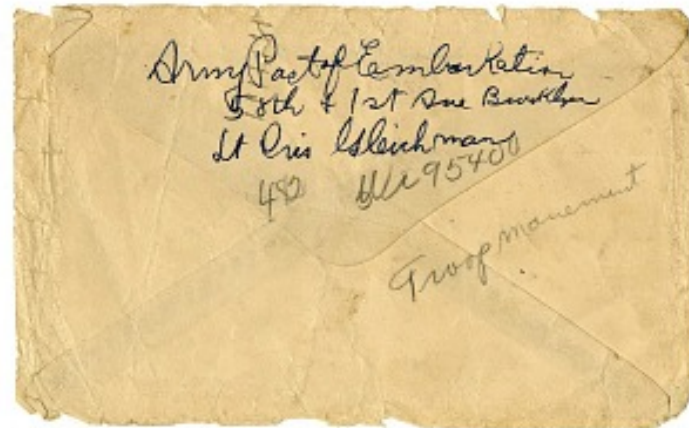 Army Port of Embarkation
58th & 1st Ave Brooklyn
Lt Gleichman
482 95400
Troop movement